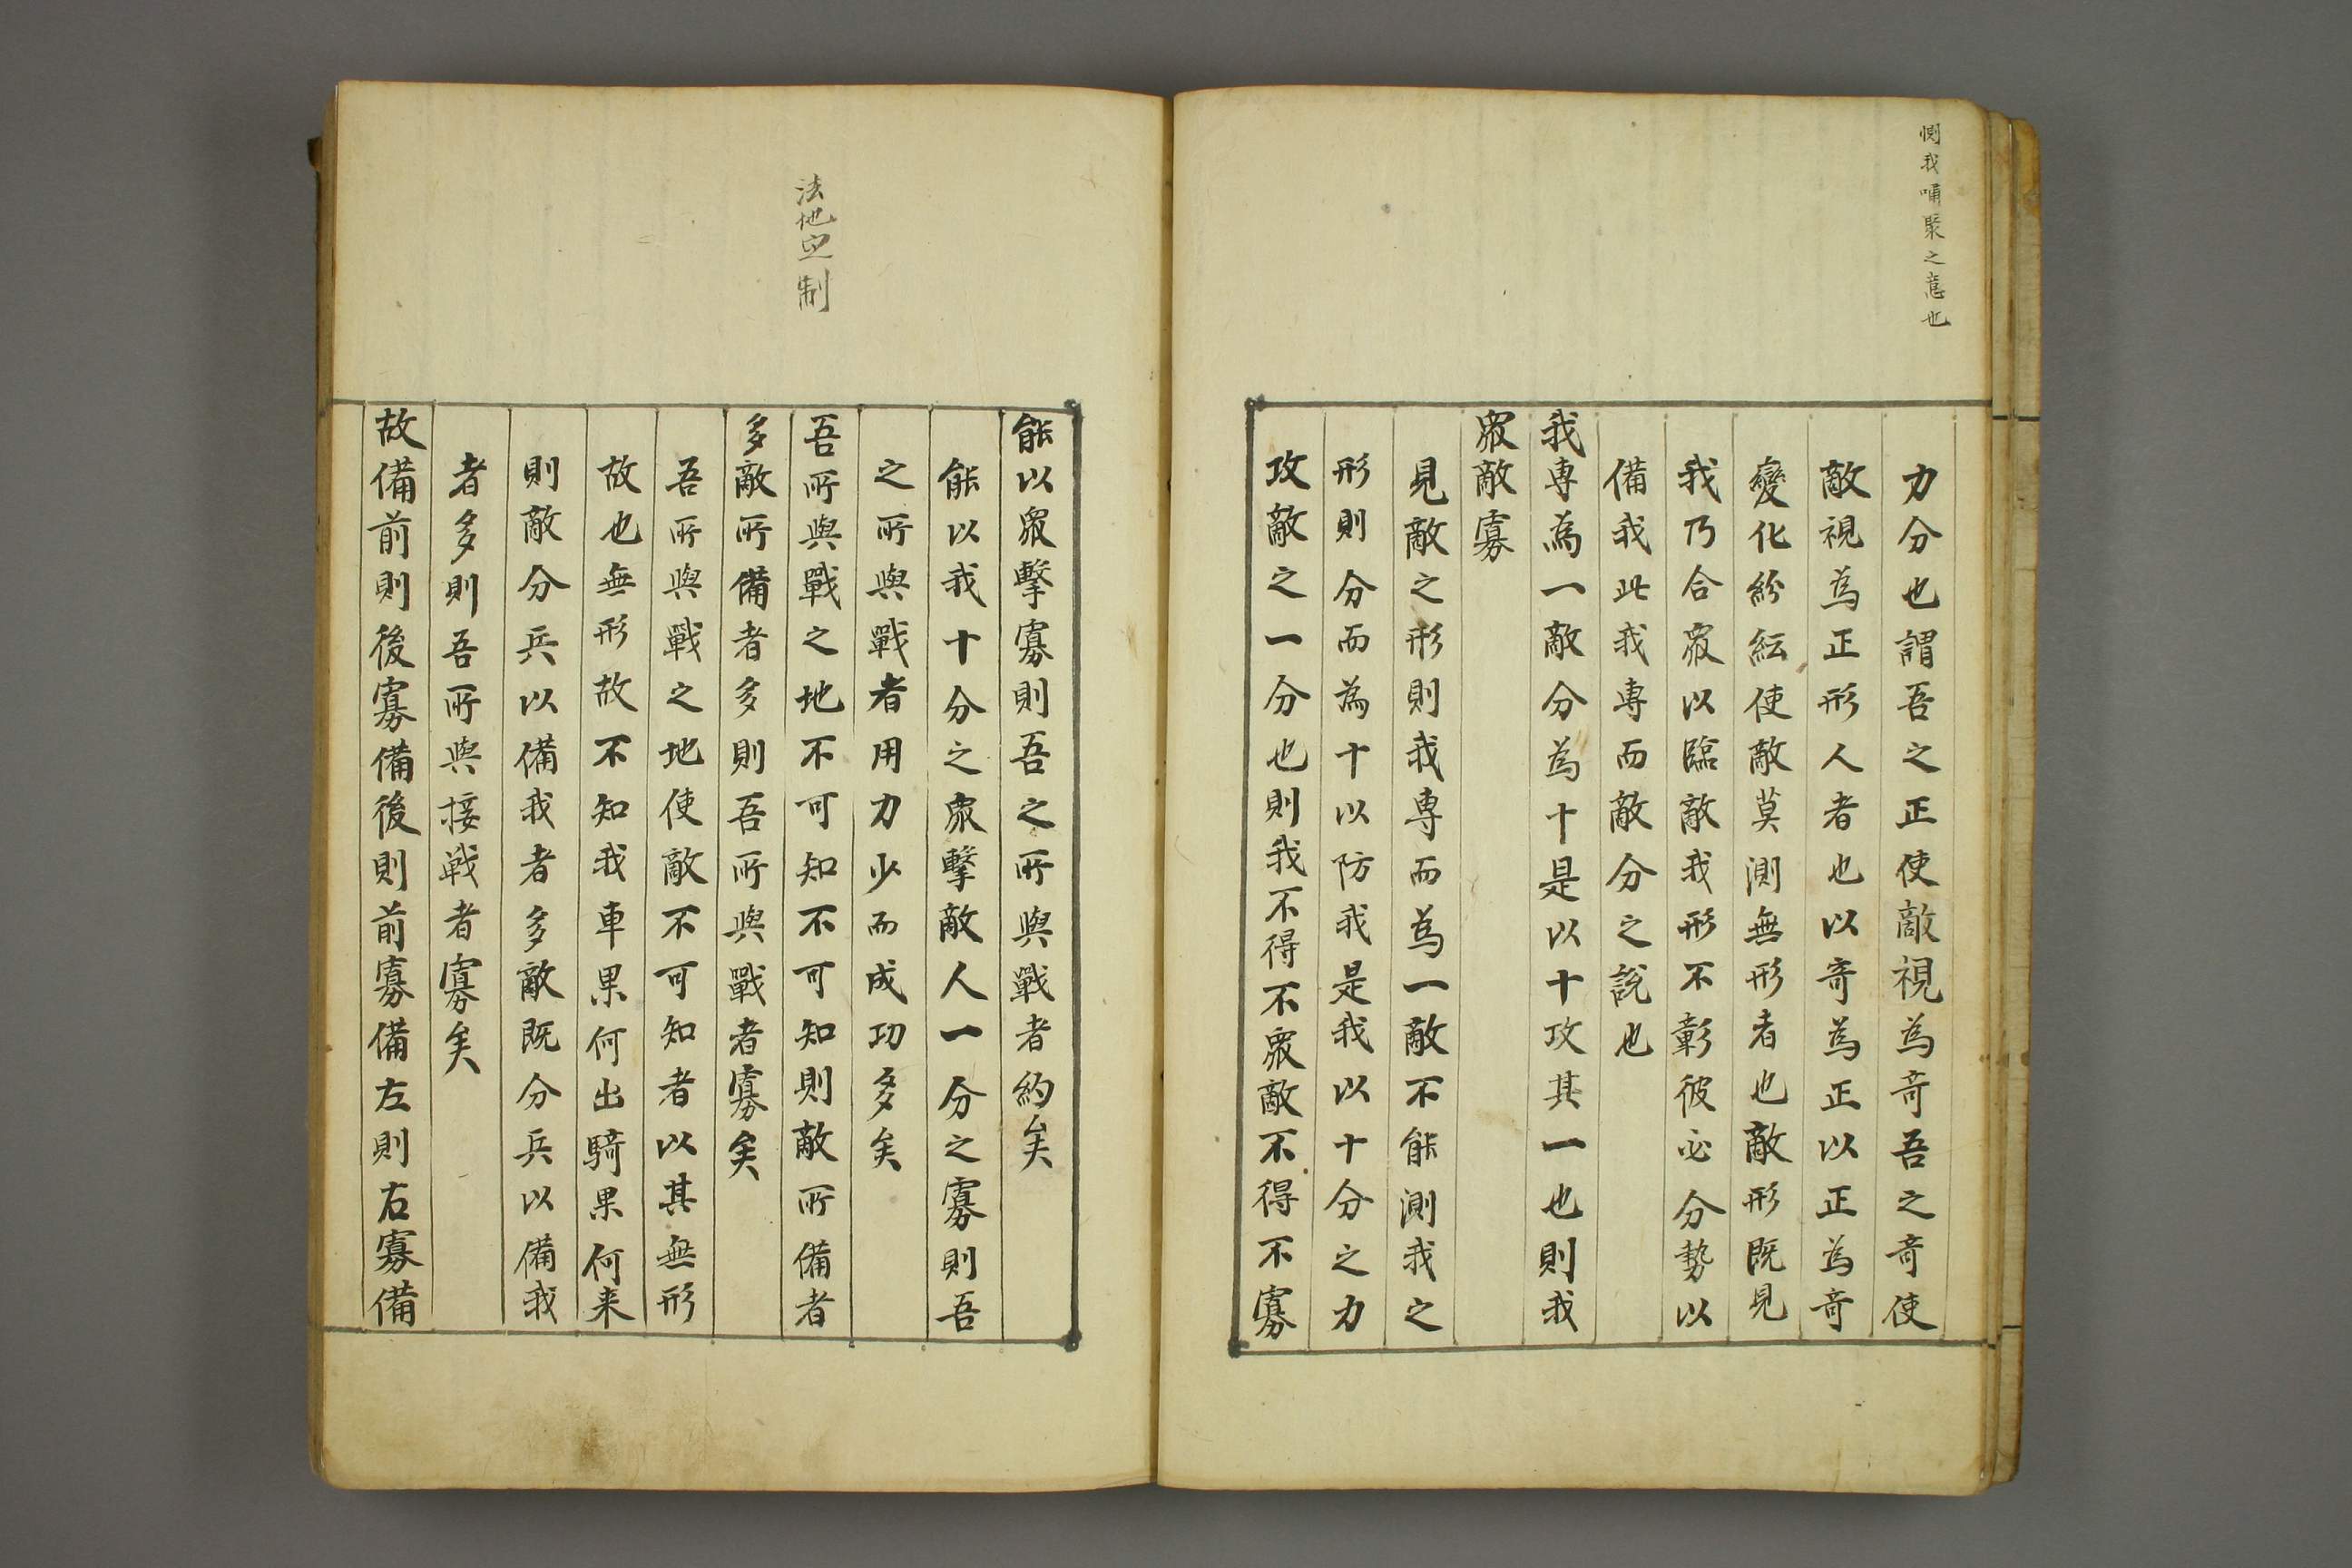 力分也謂吾之正使敵視為奇吾之奇使
敵視為正形人者也以奇為正以正為奇
變化紛紜使敵莫測無形者也敵形既見
我乃合衆以臨敵我形不彰彼必分勢以
備我此我專而敵分之說也
我專為一敵分為十是以十攻其一也則我
衆敵寡
見敵之形則我專而為一敵不能測我之
形則分而為十以防我是我以十分之力
攻敵之一分也則我不得不衆敵不得不寡
能以衆擊寡則吾之所與戰者約矣
能以我十分之衆擊敵人一分之寡則吾
之所與戰者用力少而成功多矣
吾所與戰之地不可知不可知則敵所備者
多敵所備者多則吾所與戰者寡矣
吾所與戰之地使敵不可知者以其無形
故也無形故不知我車果何出騎果何来
則敵分兵以備我者多敵既分兵以備我
者多則吾所與接戦者寡矣
故備前則後寡備後則前寡備左則右寡備
我嘯聚之意也
法地之制